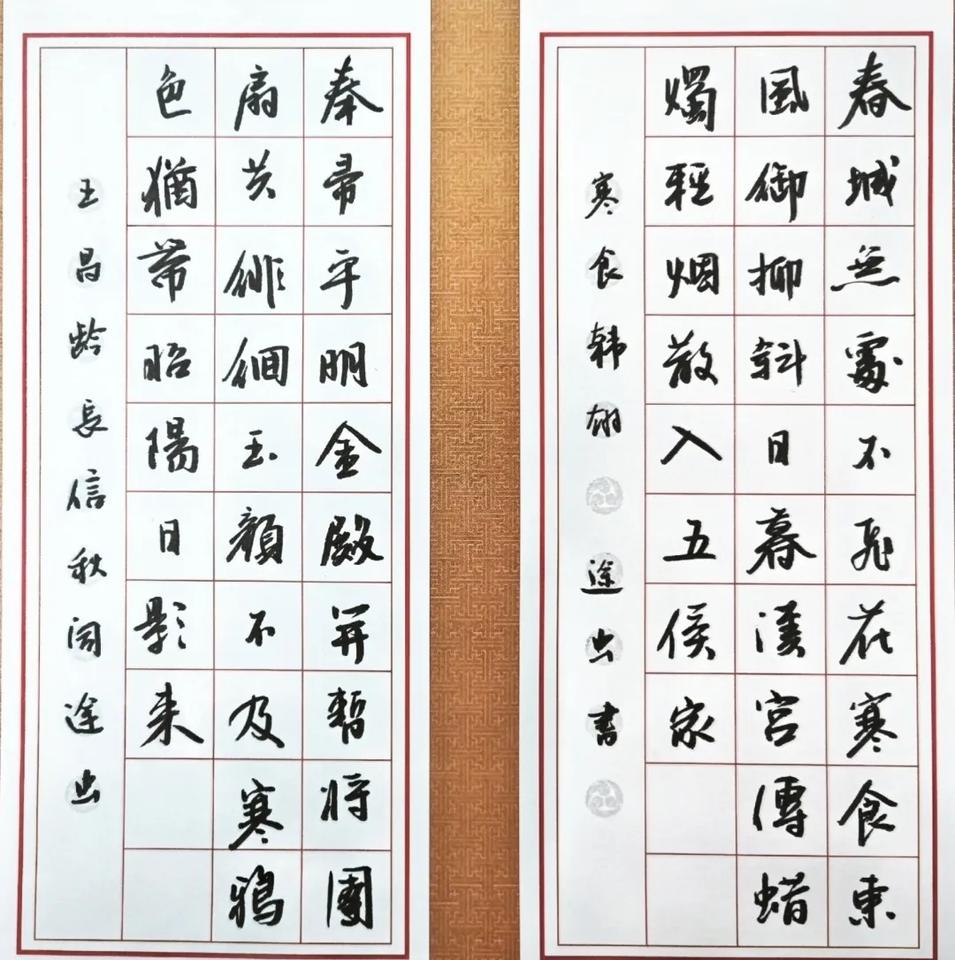 春城無處不飛花寒食東
風御柳斜日暮漢宮傳蜡
燭輕烟散入五侯家
寒食韩翃途書
奉帚平明金殿并暫將團
扇共徘徊玉顏不及寒鴉
色猶帶昭陽日影来
王昌龄長信秋词途